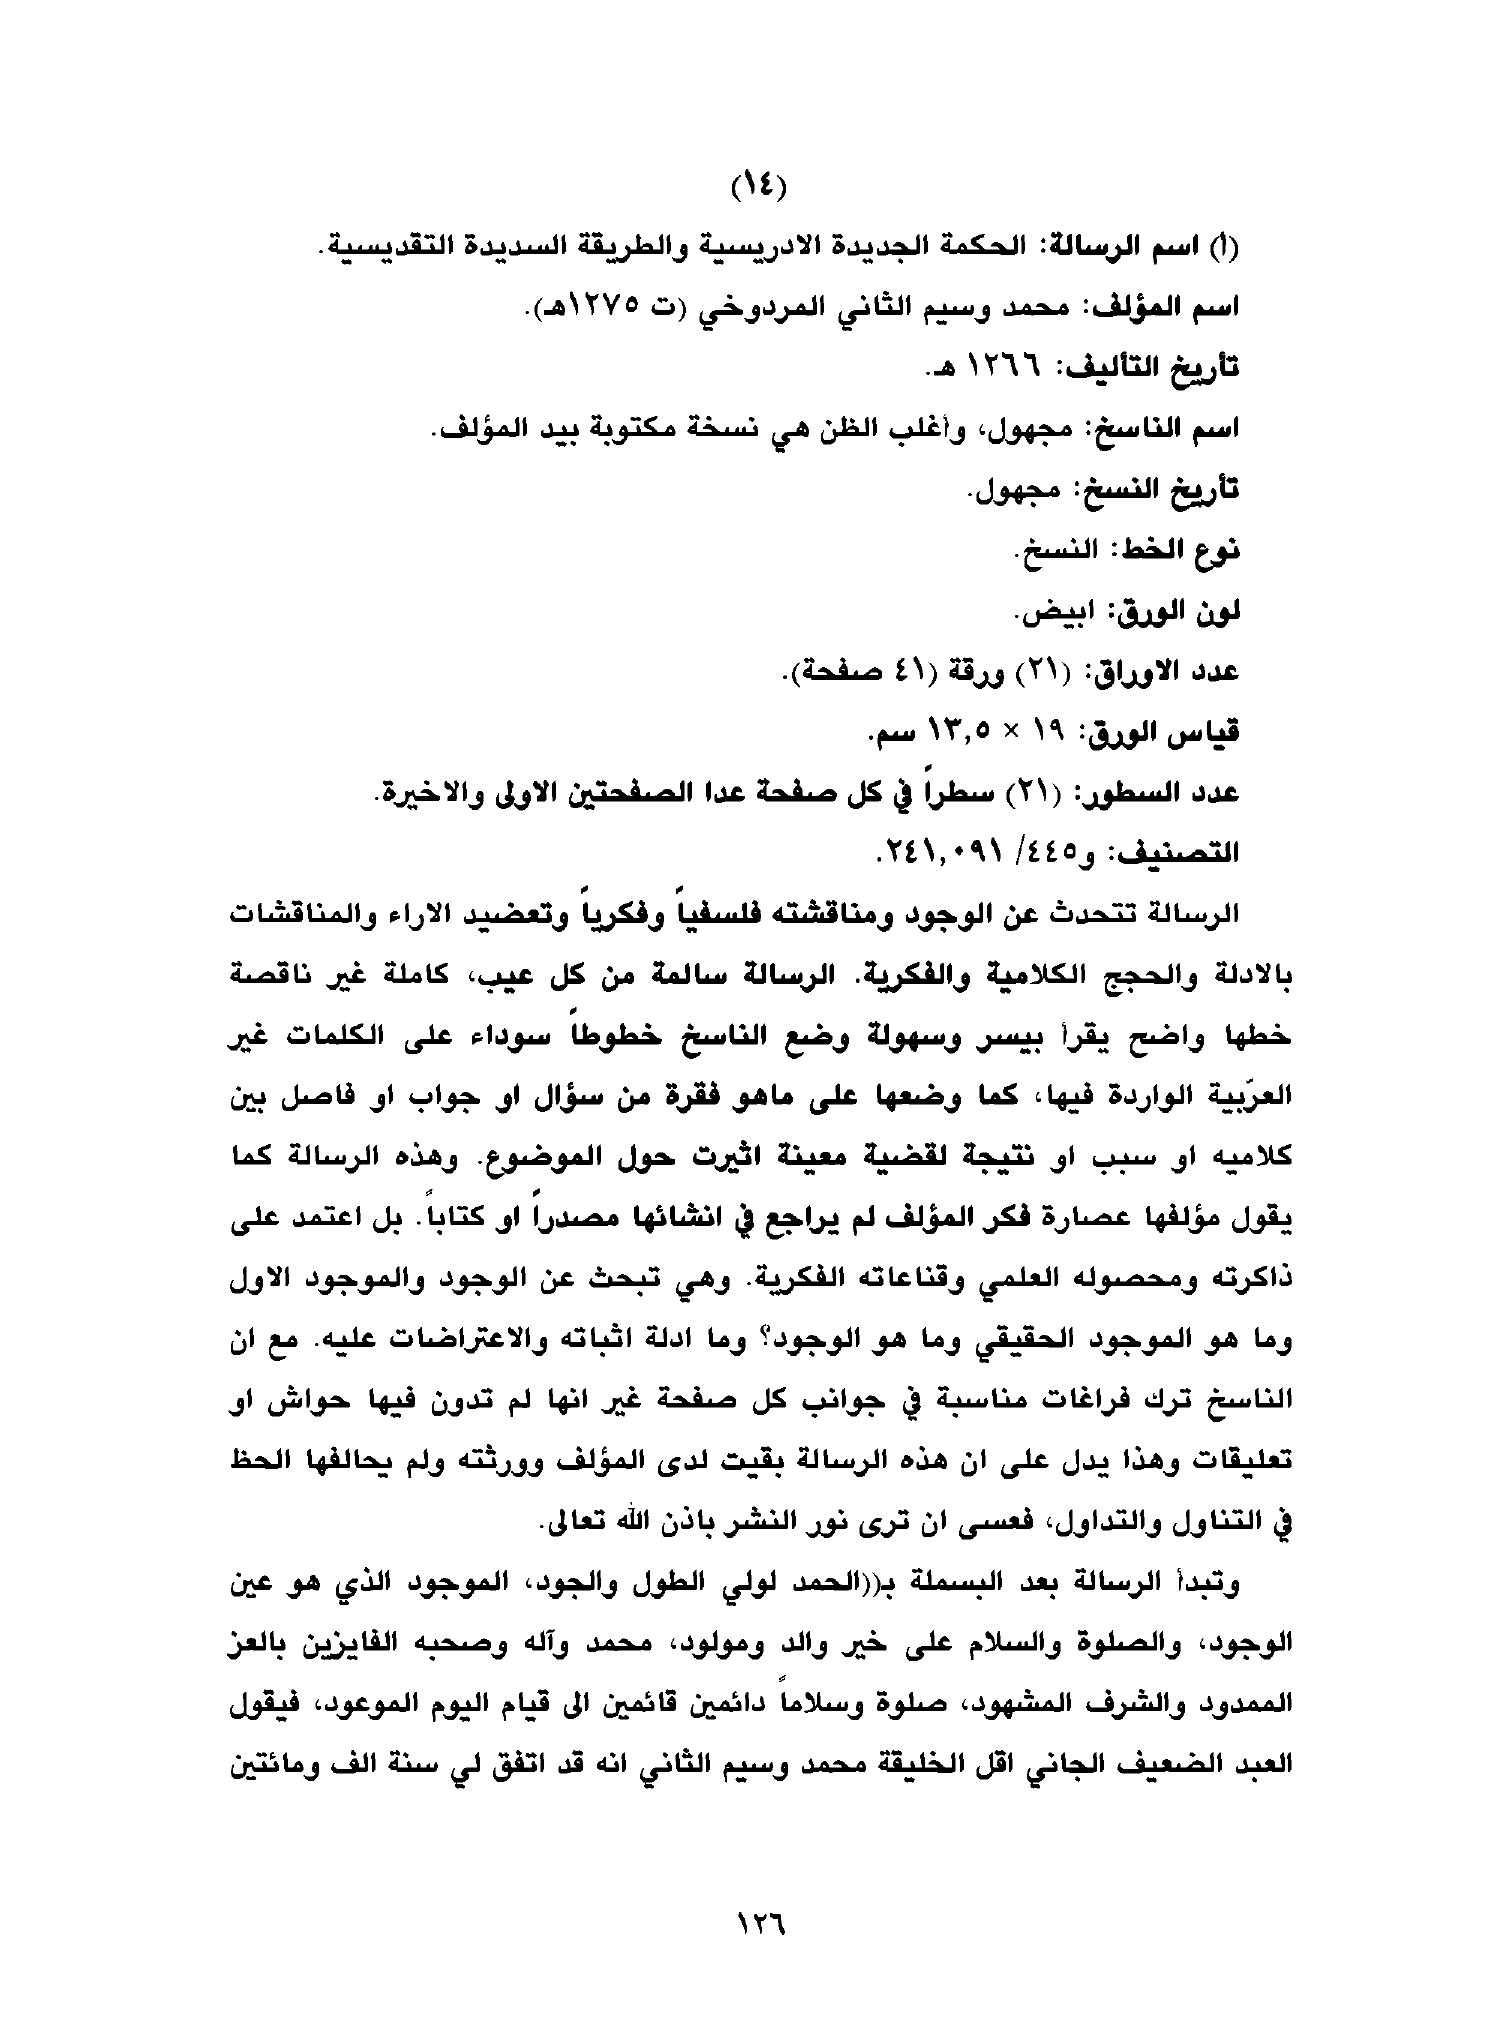 (١٤)
(أ) اسم الرسالة: الحكمة الجديدة الادريسية والطريقة السديدة التقديسية.
اسم المؤلف: محمد وسيم الثاني المردوخي (ت ١٢٧٥هـ).
تأريخ التأليف: ١٢٦٦ هـ.
اسم الناسخ: مجهول، وأغلب الظن هي نسخة مكتوبة بيد المؤلف.
تأريخ النسخ: مجهول.
نوع الخط: النسخ.
لون الورق: ابيض.
عدد الاوراق: (٢١) ورقة (٤١ صفحة).
قياس الورق: ١٩ × ١٣,٥ سم.
عدد السطور: (٢١) سطراً في كل صفحة عدا الصفحتين الاولى والاخيرة.
التصنيف: و٤٤٥/ ٢٤١,٠٩١.
الرسالة تتحدث عن الوجود ومناقشته فلسفياً وفكرياً وتعضيد الاراء والمناقشات
بالادلة والحجج الكلامية والفكرية. الرسالة سالمة من كل عيب، كاملة غير ناقصة
خطها واضح يقرأ بيسر وسهولة وضع الناسخ خطوطاً سوداء على الكلمات غير
العرّبية الواردة فيها، كما وضعها على ماهو فقرة من سؤال او جواب او فاصل بين
كلاميه او سبب او نتيجة لقضية معينة اثيرت حول الموضوع. وهذه الرسالة كما
يقول مؤلفها عصارة فكر المؤلف لم يراجع في انشائها مصدراً او كتاباً. بل اعتمد على
ذاكرته ومحصوله العلمي وقناعاته الفكرية. وهي تبحث عن الوجود والموجود الاول
وما هو الموجود الحقيقي وما هو الوجود؟ وما ادلة اثباته والاعتراضات عليه. مع ان
الناسخ ترك فراغات مناسبة في جوانب كل صفحة غير انها لم تدون فيها حواش او
تعليقات وهذا يدل على ان هذه الرسالة بقيت لدى المؤلف وورثته ولم يحالفها الحظ
في التناول والتداول، فعسى ان ترى نور النشر باذن الله تعالى.
وتبدأ الرسالة بعد البسملة بـ((الحمد لولي الطول والجود، الموجود الذي هو عين
الوجود، والصلوة والسلام على خير والد ومولود، محمد وآله وصحبه الفايزين بالعز
الممدود والشرف المشهود، صلوة وسلاماً دائمين قائمين الى قيام اليوم الموعود، فيقول
العبد الضعيف الجاني اقل الخليقة محمد وسيم الثاني انه قد اتفق لي سنة الف ومائتين
١٢٦